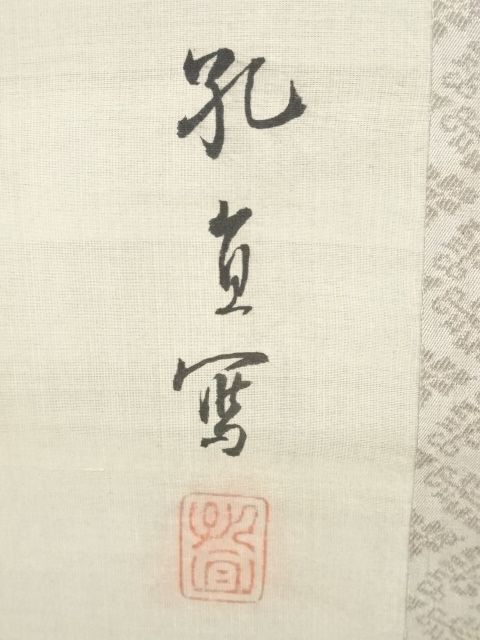 孔直寫